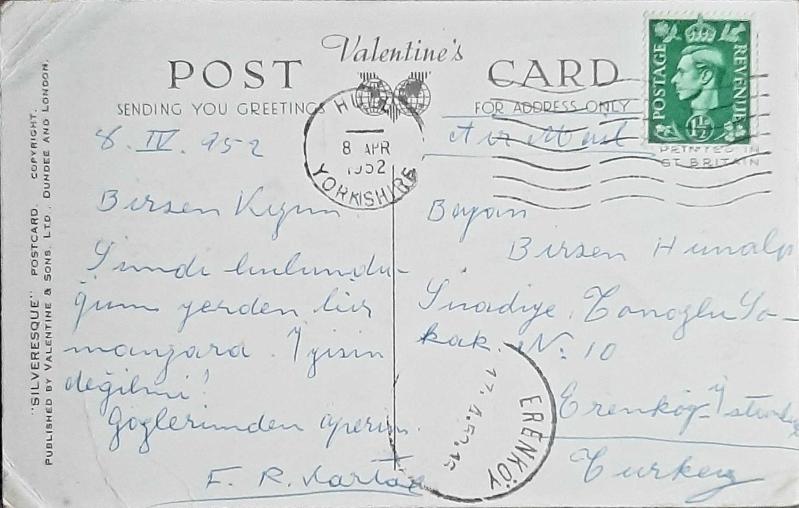 Valentine's
POST CARD
SENDING YOU GREETINGS
FOR ADDRESS ONLY
POSTAGE REVENUE
1½
PRINTED IN
GT BRITAIN
HULL
8 APR
1952
YORKSHIRE
8. IV. 952
Birsen Kızım
Şimdi bulundu-
ğum yerden bir
manzara. İyisin
değilmi!
Gözlerinden öperim.
F. R.
Air Mail
Bayan
Birsen Hunalp
Suadiye,
So-
kak. No: 10
Erenköy-İstanbul
Turkey
ERENKÖY
"SILVERESQUE" POSTCARD. COPYRIGHT.
PUBLISHED BY VALENTINE & SONS. LTD. DUNDEE AND LONDON.